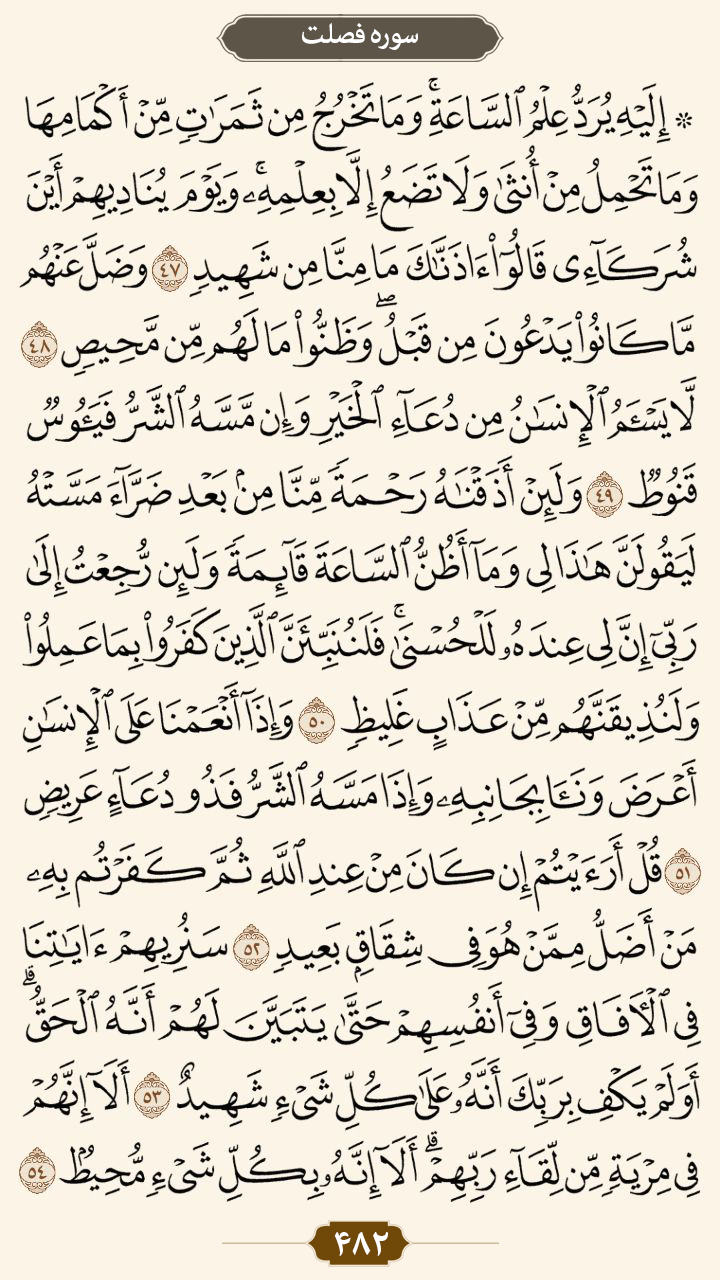 سوره فصلت
۞ إِلَيْهِ يُرَدُّ عِلْمُ ٱلسَّاعَةِۚ وَمَا تَخْرُجُ مِن ثَمَرَٰتٍ مِّنْ أَكْمَامِهَا
وَمَا تَحْمِلُ مِنْ أُنثَىٰ وَلَا تَضَعُ إِلَّا بِعِلْمِهِۦۚ وَيَوْمَ يُنَادِيهِمْ أَيْنَ
شُرَكَآءِى قَالُوٓا۟ ءَاذَنَّٰكَ مَا مِنَّا مِن شَهِيدٍ ٤٧ وَضَلَّ عَنْهُم
مَّا كَانُوا۟ يَدْعُونَ مِن قَبْلُۖ وَظَنُّوا۟ مَا لَهُم مِّن مَّحِيصٍ ٤٨
لَّا يَسْـَٔمُ ٱلْإِنسَٰنُ مِن دُعَآءِ ٱلْخَيْرِ وَإِن مَّسَّهُ ٱلشَّرُّ فَيَـُٔوسٌ
قَنُوطٌ ٤٩ وَلَئِنْ أَذَقْنَٰهُ رَحْمَةً مِّنَّا مِنۢ بَعْدِ ضَرَّآءَ مَسَّتْهُ
لَيَقُولَنَّ هَٰذَا لِى وَمَآ أَظُنُّ ٱلسَّاعَةَ قَآئِمَةً وَلَئِن رُّجِعْتُ إِلَىٰ
رَبِّىٓ إِنَّ لِى عِندَهُۥ لَلْحُسْنَىٰۚ فَلَنُنَبِّئَنَّ ٱلَّذِينَ كَفَرُوا۟ بِمَا عَمِلُوا۟
وَلَنُذِيقَنَّهُم مِّنْ عَذَابٍ غَلِيظٍ ٥٠ وَإِذَآ أَنْعَمْنَا عَلَى ٱلْإِنسَٰنِ
أَعْرَضَ وَنَـَٔا بِجَانِبِهِۦ وَإِذَا مَسَّهُ ٱلشَّرُّ فَذُو دُعَآءٍ عَرِيضٍ
٥١ قُلْ أَرَءَيْتُمْ إِن كَانَ مِنْ عِندِ ٱللَّهِ ثُمَّ كَفَرْتُم بِهِۦ
مَنْ أَضَلُّ مِمَّنْ هُوَ فِى شِقَاقٍۭ بَعِيدٍ ٥٢ سَنُرِيهِمْ ءَايَٰتِنَا
فِى ٱلْـَٔافَاقِ وَفِىٓ أَنفُسِهِمْ حَتَّىٰ يَتَبَيَّنَ لَهُمْ أَنَّهُ ٱلْحَقُّۗ
أَوَلَمْ يَكْفِ بِرَبِّكَ أَنَّهُۥ عَلَىٰ كُلِّ شَىْءٍ شَهِيدٌ ٥٣ أَلَآ إِنَّهُمْ
فِى مِرْيَةٍ مِّن لِّقَآءِ رَبِّهِمْۗ أَلَآ إِنَّهُۥ بِكُلِّ شَىْءٍ مُّحِيطٌۢ ٥٤
۴۸۲